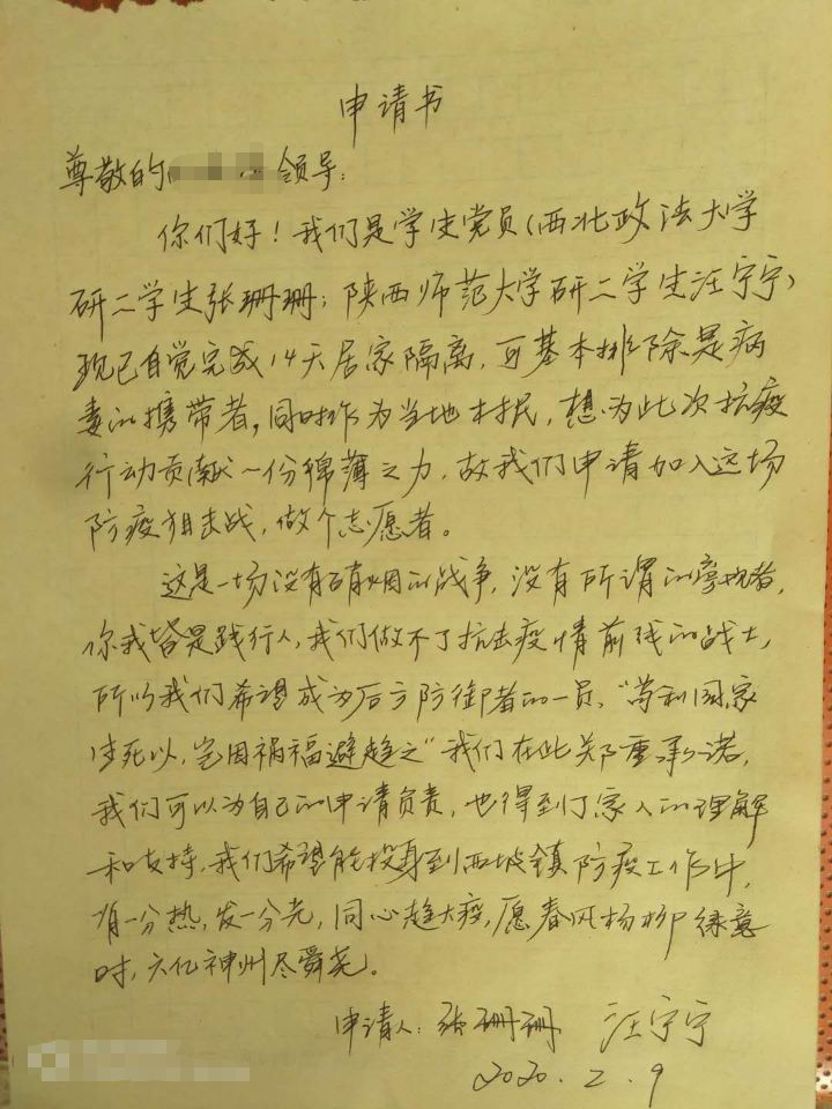 申请书
尊敬的 领导:
你们好!我们是学生党员(西北政法大学
研二学生张珊珊;陕西师范大学研二学生汪宁宁)
现已自觉完成14天居家隔离,可基本排除是病
毒的携带者,同时作为当地村民,想为此次抗疫
行动贡献一份绵薄之力,故我们申请加入这场
防疫狙击战,做个志愿者。
这是一场没有硝烟的战争,没有所谓的旁观者,
你我皆是践行人,我们做不了抗击疫情前线的战士,
所以我们希望成为后方防御者的一员、“苟利国家
生死以,岂因祸福避趋之”我们在此郑重承诺,
我们可以为自己的申请负责,也得到了家人的理解
和支持,我们希望能投身到西坡镇防疫工作中,
有一分热,发一分光,同心趋大疫,愿春风杨柳绿意
时,六亿神州尽舜尧。
申请人:张珊珊 汪宁宁
2020.2.9